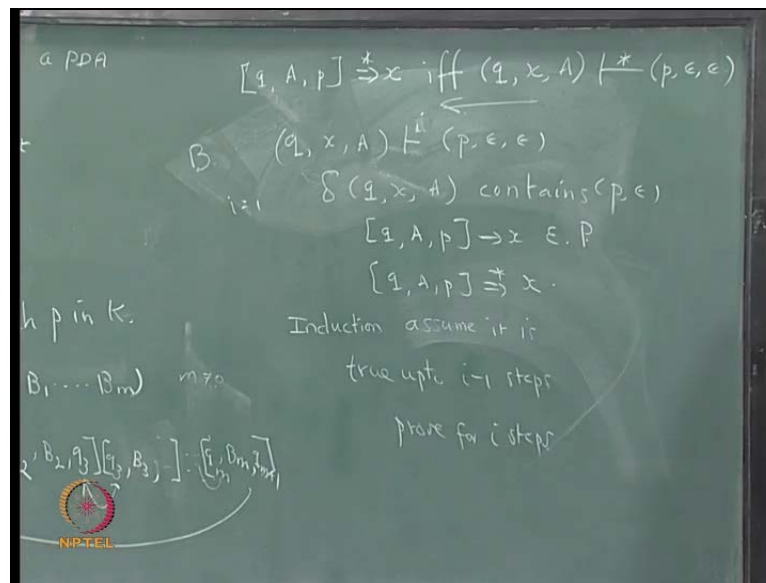 a PDA
[q, A, p] ⇒* x iff (q, x, A) ⊢* (p, ε, ε)
B. (q, x, A) ⊢ⁱ (p, ε, ε)
i=1 δ(q, x, A) contains (p, ε)
[q, A, p] → x ε. P
[q, A, p] ⇒* x.
h p in K.
Induction assume it is
B₁ .... Bₘ) m≥0
true upto i-1 steps
prove for i steps
, B₂, q₃][q₃, B₃, - ] .. [qₘ, Bₘ, qₘ₊₁]
NPTEL